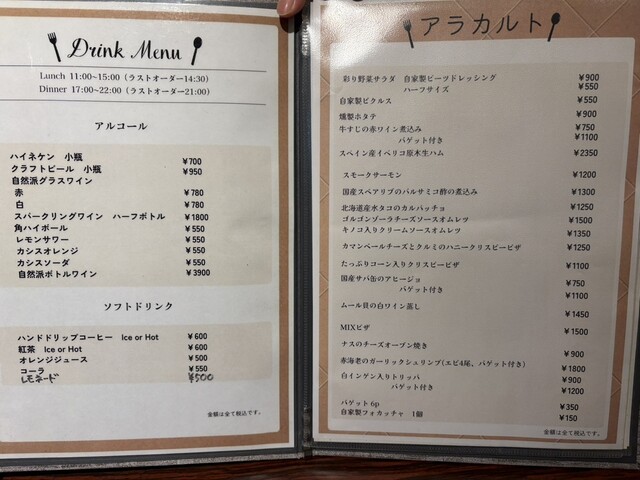 Drink Menu
Lunch 11:00~15:00（ラストオーダー14:30）
Dinner 17:00~22:00（ラストオーダー21:00）
アルコール
ハイネケン 小瓶 ¥700
クラフトビール 小瓶 ¥950
自然派グラスワイン
赤 ¥780
白 ¥780
スパークリングワイン ハーフボトル ¥1800
角ハイボール ¥550
レモンサワー ¥550
カシスオレンジ ¥550
カシスソーダ ¥550
自然派ボトルワイン ¥3900
ソフトドリンク
ハンドドリップコーヒー Ice or Hot ¥600
紅茶 Ice or Hot ¥600
オレンジジュース ¥500
コーラ ¥550
レモネード ¥500
金額は全て税込です。
アラカルト
彩り野菜サラダ 自家製ビーツドレッシング ¥900
ハーフサイズ ¥550
自家製ピクルス ¥550
燻製ホタテ ¥900
牛すじの赤ワイン煮込み ¥750
バゲット付き ¥1100
スペイン産イベリコ原木生ハム ¥2350
スモークサーモン ¥1200
国産スペアリブのバルサミコ酢の煮込み ¥1300
北海道産水タコのカルパッチョ ¥1250
ゴルゴンゾーラチーズソースオムレツ ¥1500
キノコ入りクリームソースオムレツ ¥1350
カマンベールチーズとクルミのハニークリスピーピザ ¥1250
たっぷりコーン入りクリスピーピザ ¥1100
国産サバ缶のアヒージョ ¥750
バゲット付き ¥1100
ムール貝の白ワイン蒸し ¥1450
MIXピザ ¥1500
ナスのチーズオーブン焼き ¥900
赤海老のガーリックシュリンプ(エビ4尾、バゲット付き) ¥1800
白インゲン入りトリッパ ¥900
バゲット付き ¥1200
バゲット 6p ¥350
自家製フォカッチャ 1個 ¥150
金額は全て税込です。